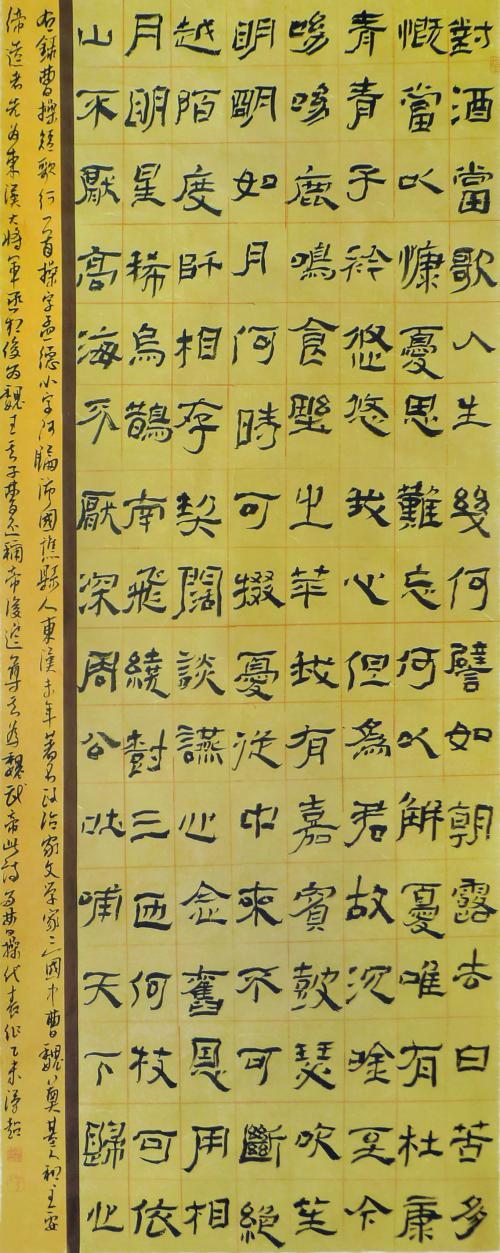 對酒當歌人生幾何譬如朝露去日苦多
慨當以慷憂思難忘何以解憂唯有杜康
青青子衿悠悠我心但為君故沉吟至今
呦呦鹿鳴食野之苹我有嘉賓鼓瑟吹笙
明明如月何時可掇憂從中來不可斷絕
越陌度阡相存契闊談讌心念舊恩用相
月明星稀烏鵲南飛繞樹三匝何枝可依
山不厭高海不厭深周公吐哺天下歸心
右錄曹操短歌行一首操字孟德小字阿瞞沛國譙縣人東漢末年著名政治家文學家三國中曹魏奠基人和主要
締造者先為東漢大將軍丞相後為魏王其子曹丕稱帝後追尊其為魏武帝此詩為曹操代表作乙未